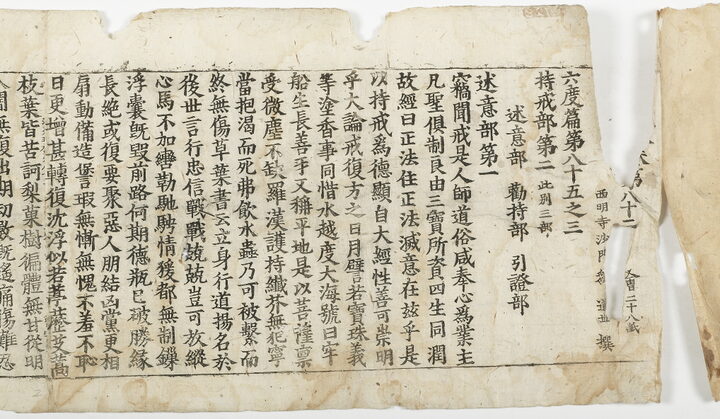 第八十二
西明寺沙門 道世 撰
六度篇第八十五之三
持戒部第二 此別三部
述意部 勸持部 引證部
述意部第一
竊聞戒是人師道俗咸奉心爲業主
凡聖俱制良由三寶所資四生同潤
故經曰正法住正法滅意在茲乎是
以持戒爲德顯自大經性善可崇明
乎大論戒復方之日月譬若寶珠義
等塗香事同惜水越度大海號曰牢
船生長善牙又稱平地是以菩薩稟
受微塵不缺羅漢護持纖芥無犯寧
當抱渴而死弗飲水蟲乃可被繫而
終無傷草葉書云立身行道揚名於
後世言行忠信戰戰兢兢豈可放縱
心馬不加轡勒馳騁情猨都無制鏁
浮囊旣毀前路何期德瓶已破勝緣
長絕或復要聚惡人朋結凶黨更相
扇動備造瑕無慚無愧不羞不恥
日更增甚轉復沈浮似若葶藶艾蒿
枝葉皆苦訶梨菓樹徧體無甘從明
入闇無復出期劫數旣遙痛傷難忍